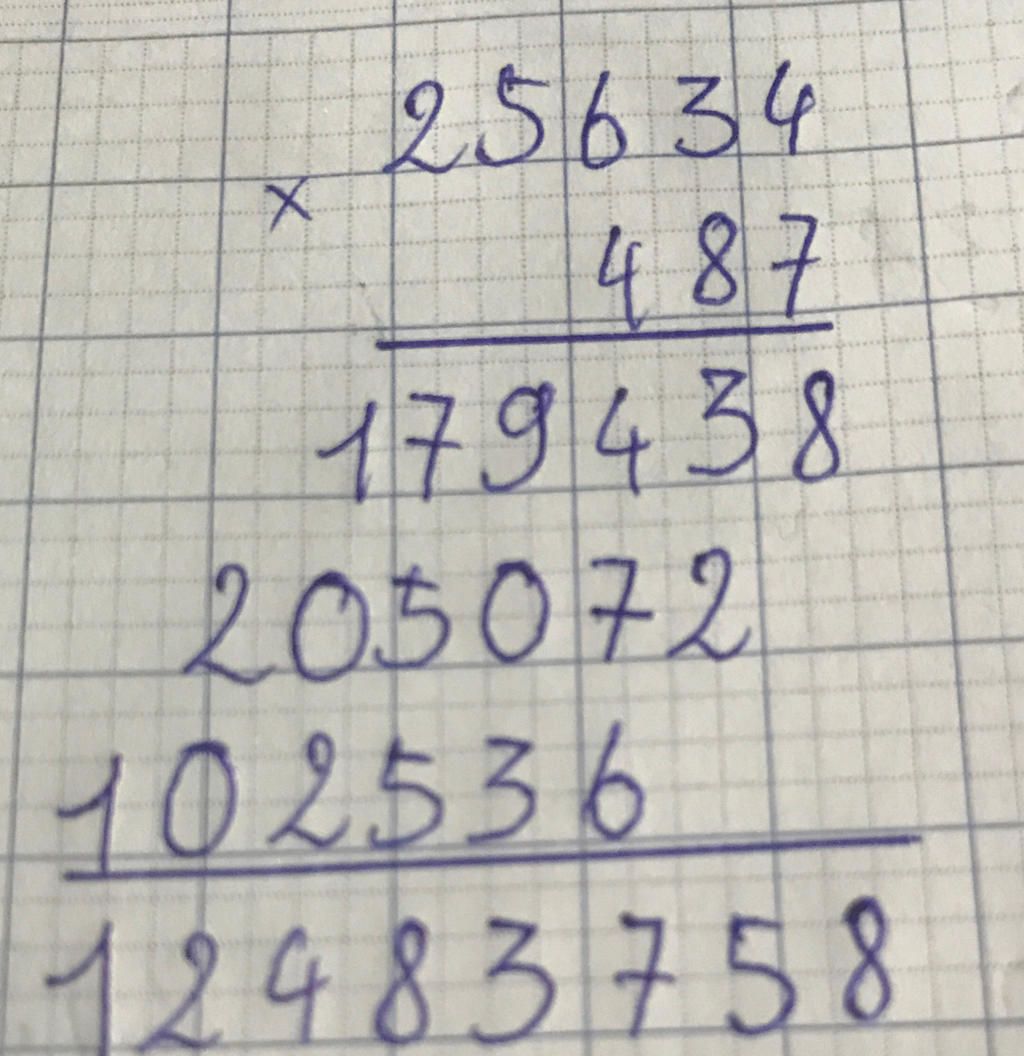 25634
×
487
179438
205072
102536
12483758